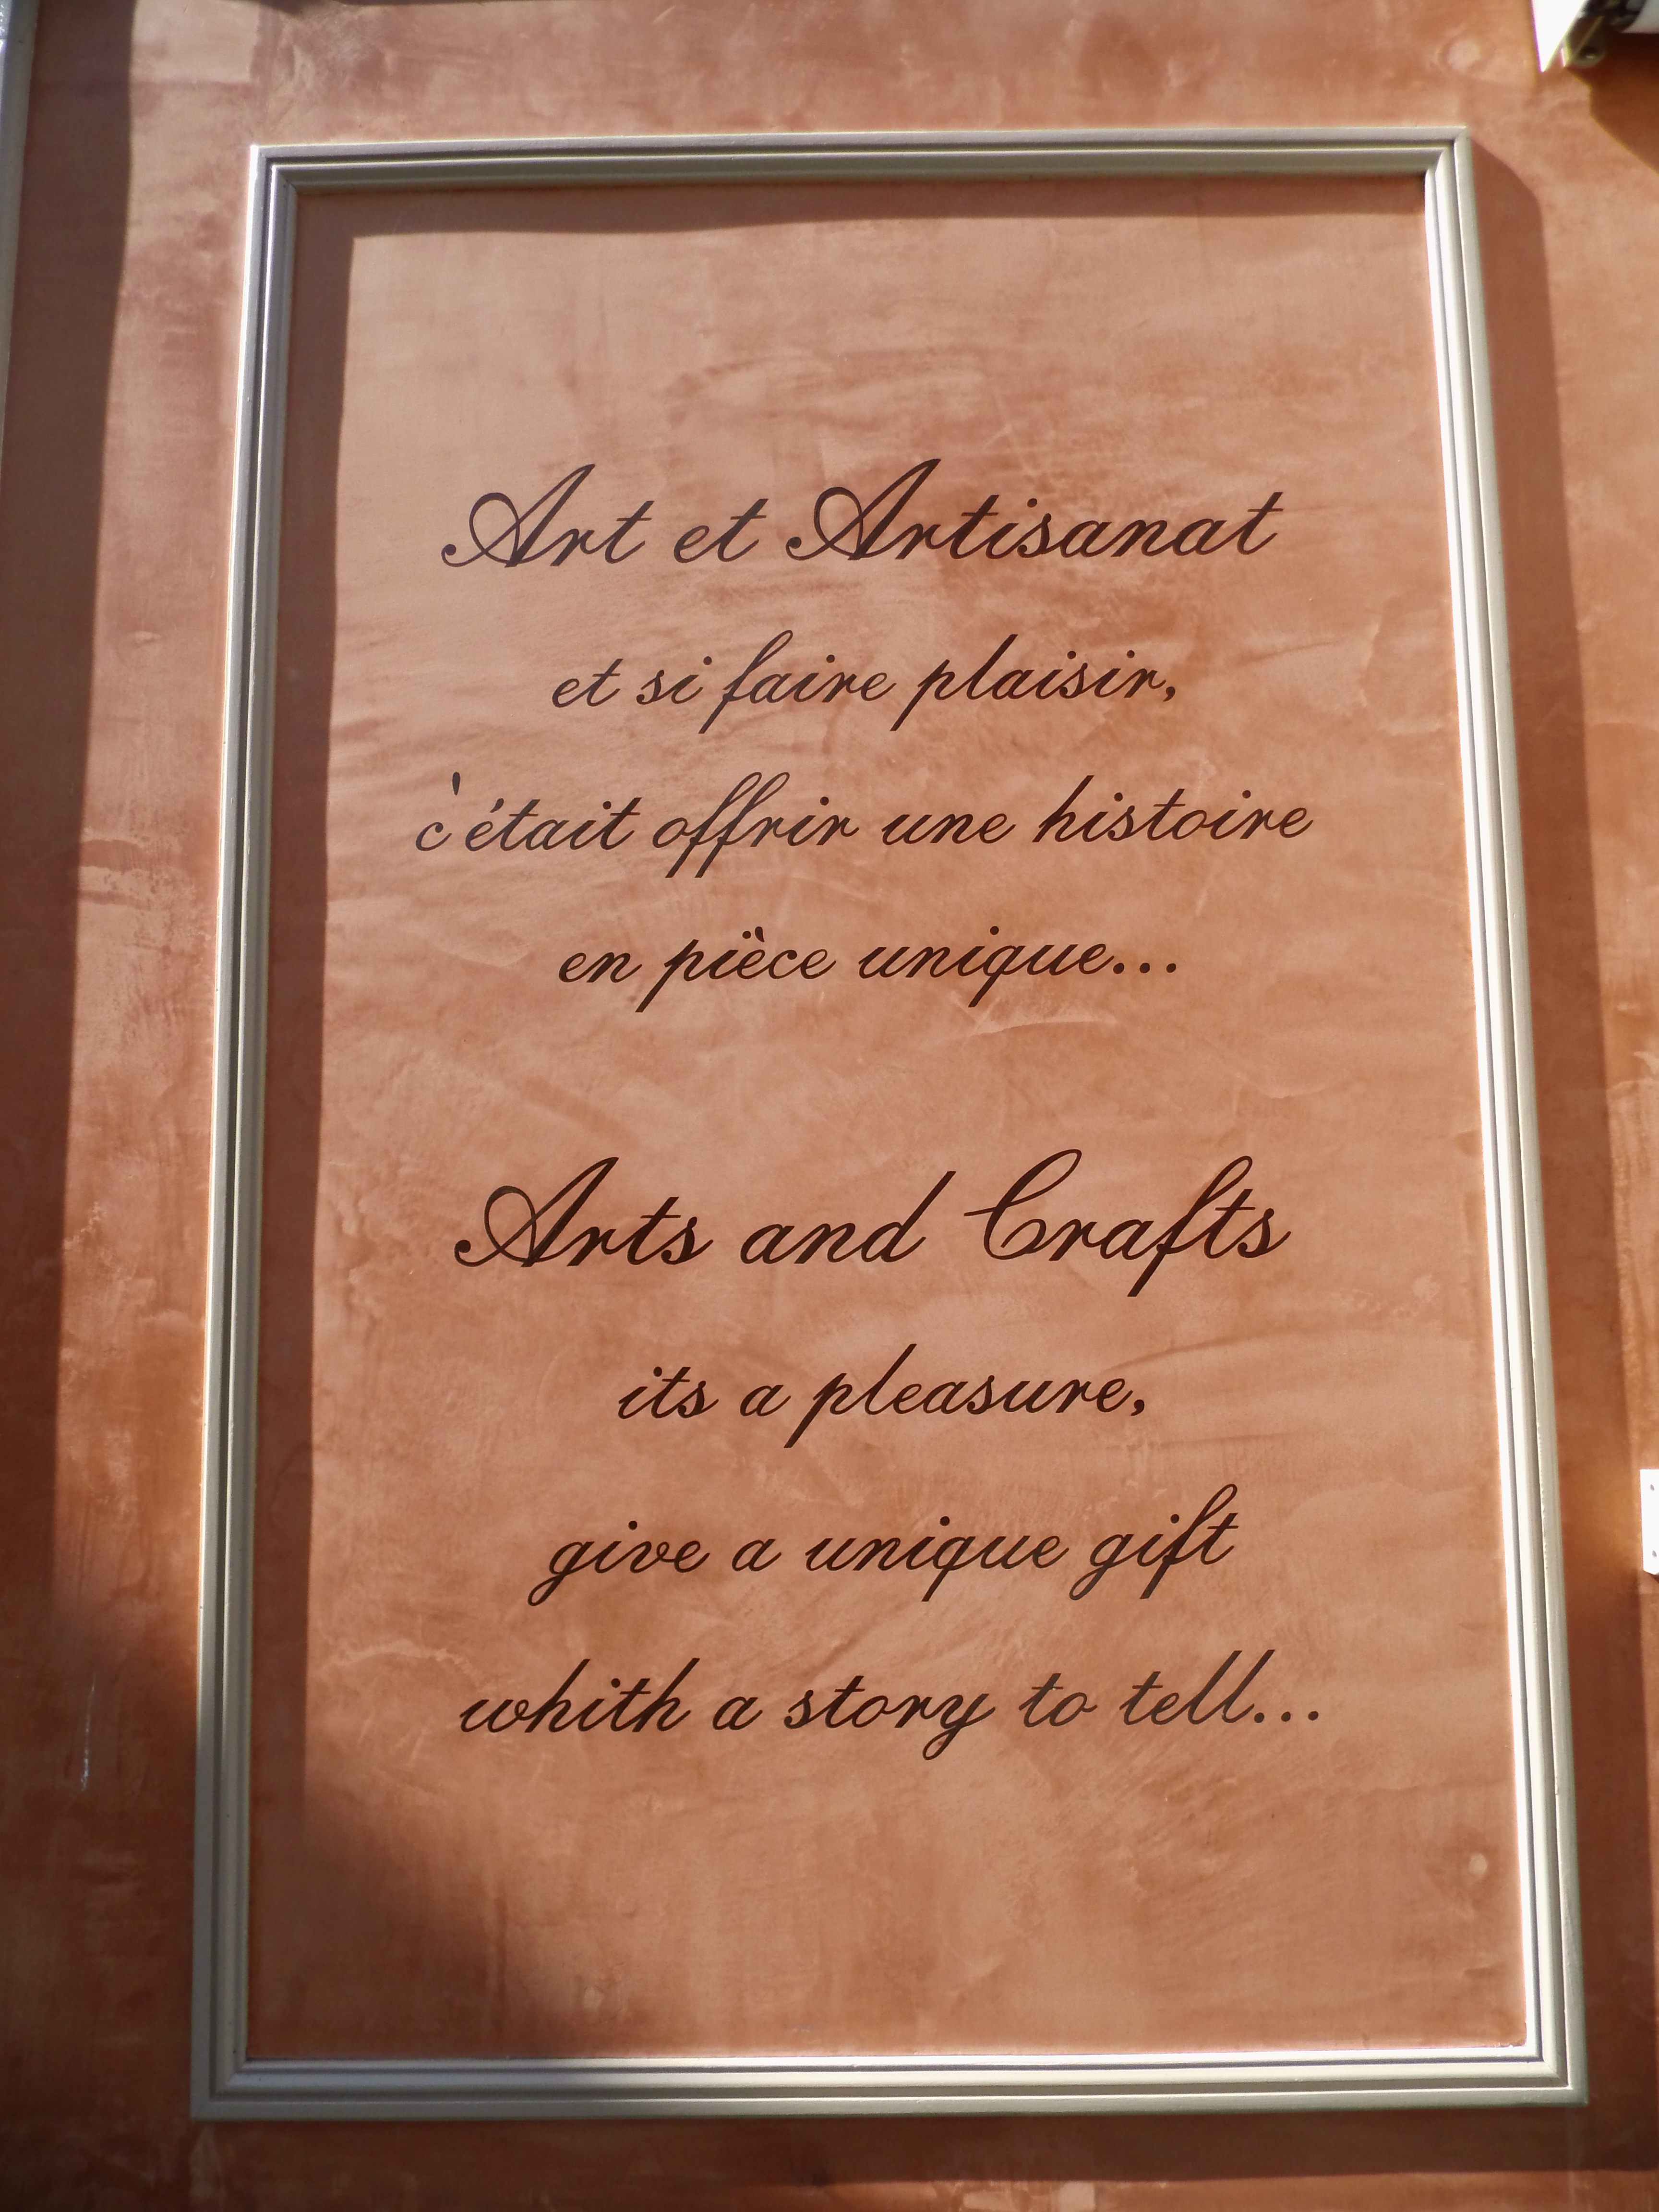 Art et Artisanat
et si faire plaisir,
c'était offrir une histoire
en pièce unique...
Arts and Crafts
its a pleasure,
give a unique gift
whith a story to tell...